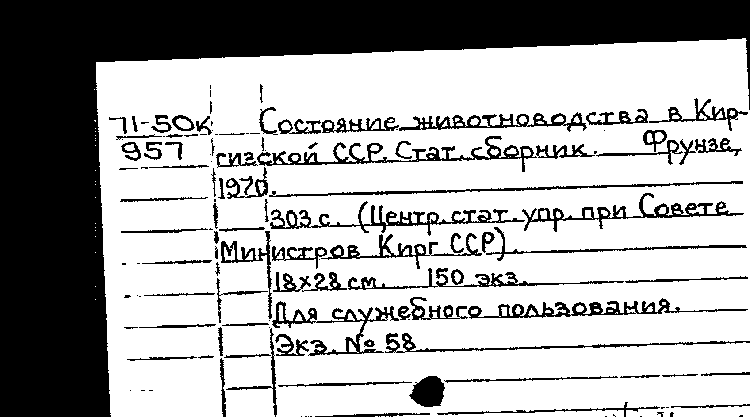 71-50к Состояние животноводства в Кир-
957 гизской ССР. Стат. сборник. Фрунзе,
1970.
303 с. (Центр. стат. упр. при Совете
Министров Кирг ССР).
18x28 см. 150 экз.
Для служебного пользования.
Экз. № 58